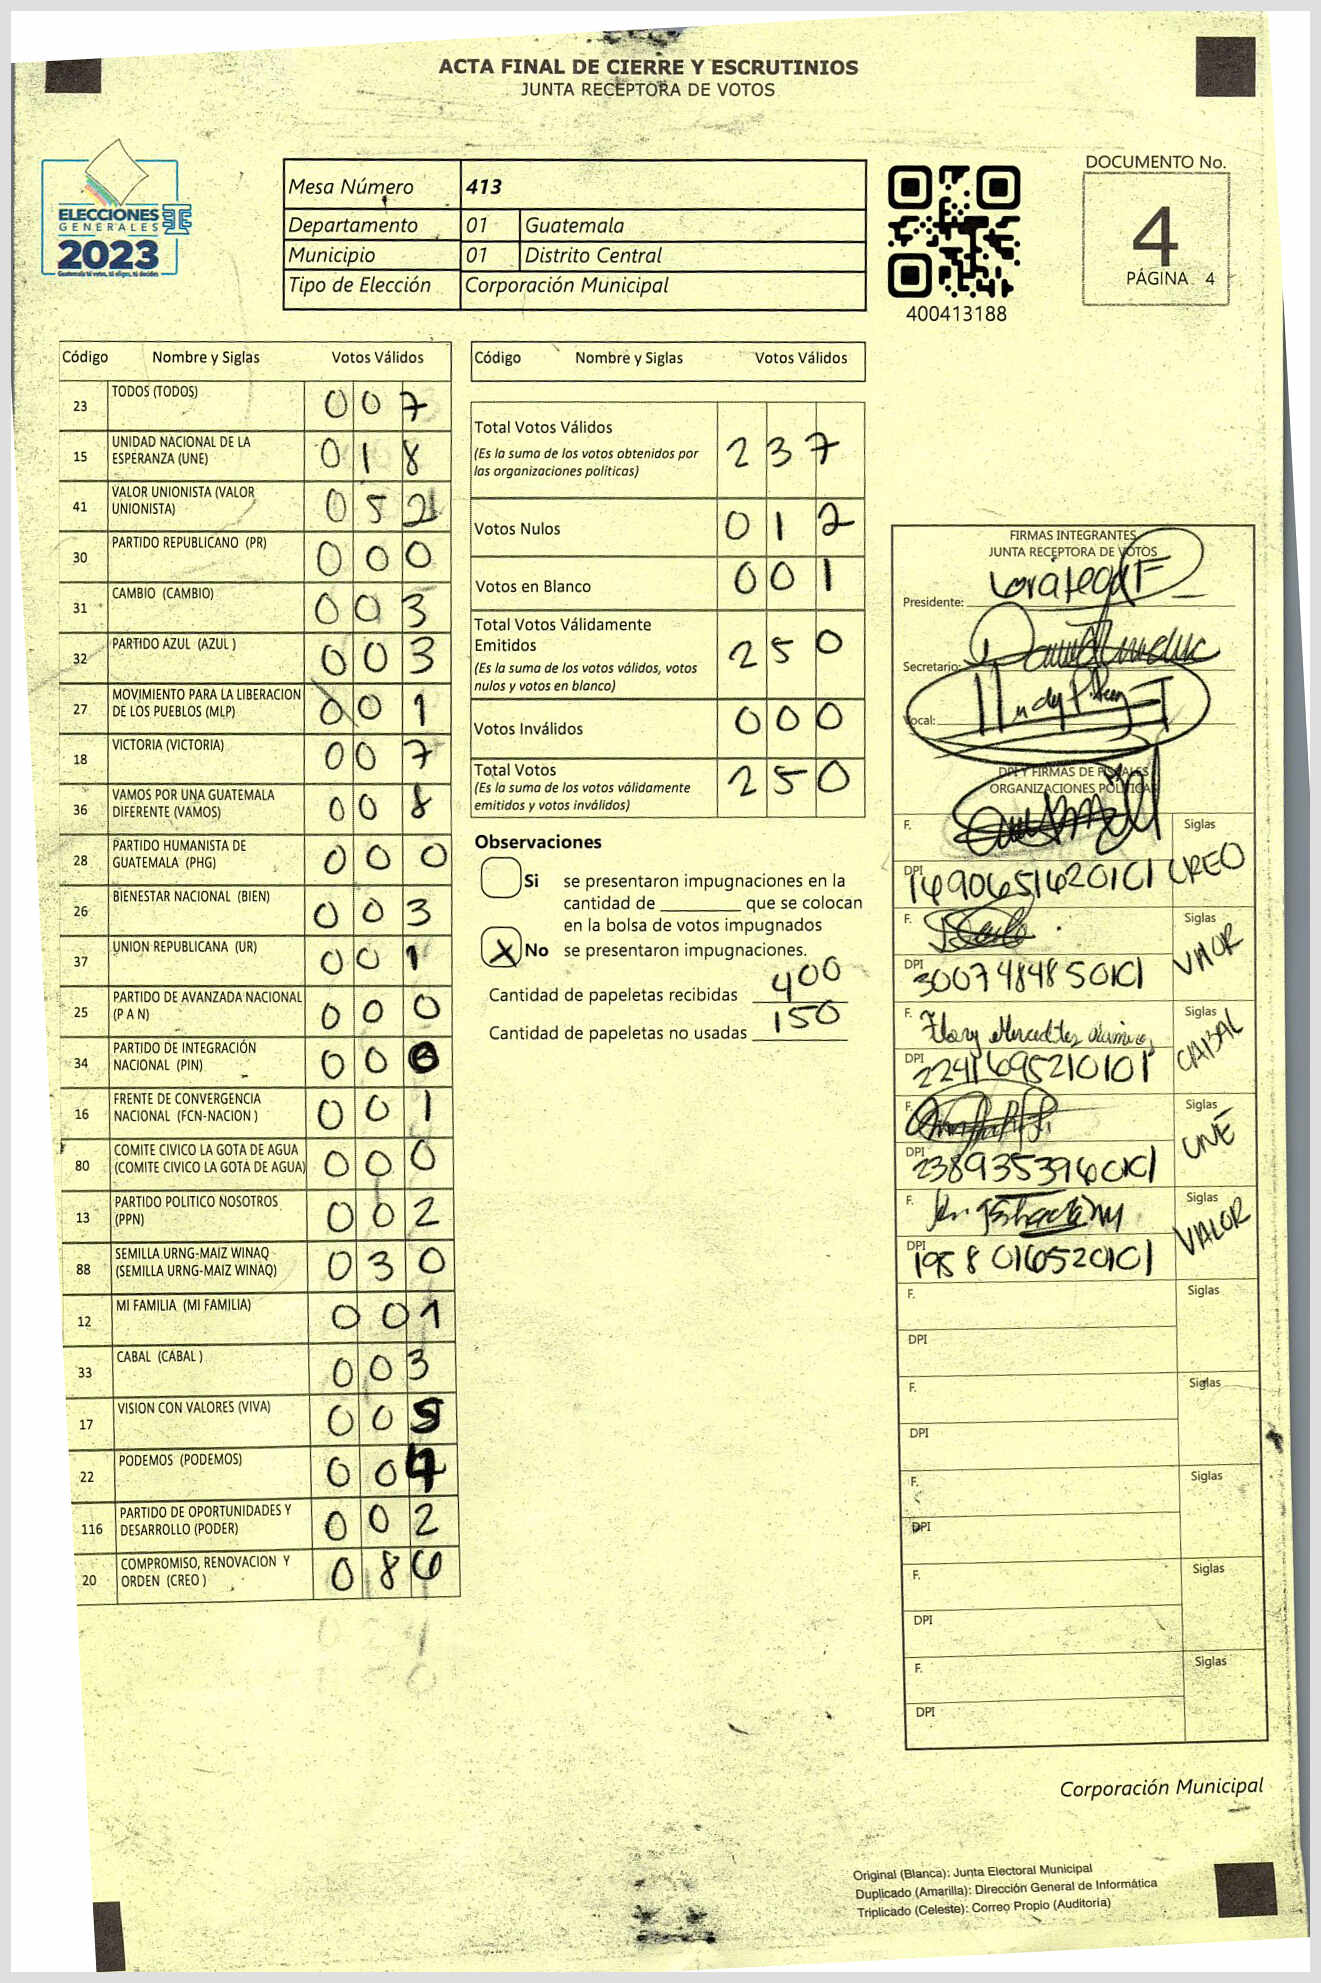 ACTA FINAL DE CIERRE Y ESCRUTINIOS
JUNTA RECEPTORA DE VOTOS
ELECCIONES
GENERALES
2023
Mesa Número 413
Departamento 01 Guatemala
Municipio 01 Distrito Central
Tipo de Elección Corporación Municipal
400413188
DOCUMENTO No.
4
PÁGINA 4
Código Nombre y Siglas Votos Válidos
23 TODOS (TODOS) 007
15 UNIDAD NACIONAL DE LA
ESPERANZA (UNE) 018
41 VALOR UNIONISTA (VALOR
UNIONISTA) 052
30 PARTIDO REPUBLICANO (PR) 000
31 CAMBIO (CAMBIO) 003
32 PARTIDO AZUL (AZUL ) 003
27 MOVIMIENTO PARA LA LIBERACION
DE LOS PUEBLOS (MLP) 001
18 VICTORIA (VICTORIA) 007
36 VAMOS POR UNA GUATEMALA
DIFERENTE (VAMOS) 008
28 PARTIDO HUMANISTA DE
GUATEMALA (PHG) 000
26 BIENESTAR NACIONAL (BIEN) 003
37 UNION REPUBLICANA (UR) 001
25 PARTIDO DE AVANZADA NACIONAL
(P A N) 000
34 PARTIDO DE INTEGRACIÓN
NACIONAL (PIN) 000
16 FRENTE DE CONVERGENCIA
NACIONAL (FCN-NACION ) 001
80 COMITE CIVICO LA GOTA DE AGUA
(COMITE CIVICO LA GOTA DE AGUA) 000
13 PARTIDO POLITICO NOSOTROS
(PPN) 002
88 SEMILLA URNG-MAIZ WINAQ
(SEMILLA URNG-MAIZ WINAQ) 030
12 MI FAMILIA (MI FAMILIA) 001
33 CABAL (CABAL ) 003
17 VISION CON VALORES (VIVA) 005
22 PODEMOS (PODEMOS) 004
116 PARTIDO DE OPORTUNIDADES Y
DESARROLLO (PODER) 002
20 COMPROMISO, RENOVACION Y
ORDEN (CREO ) 086
Código Nombre y Siglas Votos Válidos
Total Votos Válidos 237
(Es la suma de los votos obtenidos por
las organizaciones políticas)
Votos Nulos 012
Votos en Blanco 001
Total Votos Válidamente
Emitidos 250
(Es la suma de los votos válidos, votos
nulos y votos en blanco)
Votos Inválidos 000
Total Votos 250
(Es la suma de los votos válidamente
emitidos y votos inválidos)
Observaciones
Si se presentaron impugnaciones en la
cantidad de ________ que se colocan
en la bolsa de votos impugnados
X No se presentaron impugnaciones.
Cantidad de papeletas recibidas 400
Cantidad de papeletas no usadas 150
FIRMAS INTEGRANTES
JUNTA RECEPTORA DE VOTOS
Presidente:
Secretario:
Vocal:
DPI Y FIRMAS DE FISCALES
ORGANIZACIONES POLÍTICAS
F. Siglas
DPI 1690651620101 CREO
F. Siglas
DPI 3007484850101 VALOR
F. Flory Mercedes Siglas
DPI 2241695210101 CABAL
F. Siglas
DPI 2389353960101 UNE
F. Siglas
DPI 1958016520101 VALOR
F. Siglas
DPI
F. Siglas
DPI
F. Siglas
DPI
F. Siglas
DPI
F. Siglas
DPI
Corporación Municipal
Original (Blanca): Junta Electoral Municipal
Duplicado (Amarilla): Dirección General de Informática
Triplicado (Celeste): Correo Propio (Auditoria)